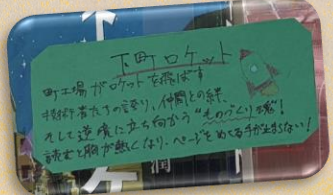 下町ロケット
町工場がロケットを飛ばす
技術者たちの誇り、仲間との絆、
そして逆境に立ち向かう"ものづくり魂"!
読むと胸が熱くなり、ページをめくる手が止まらない!
下